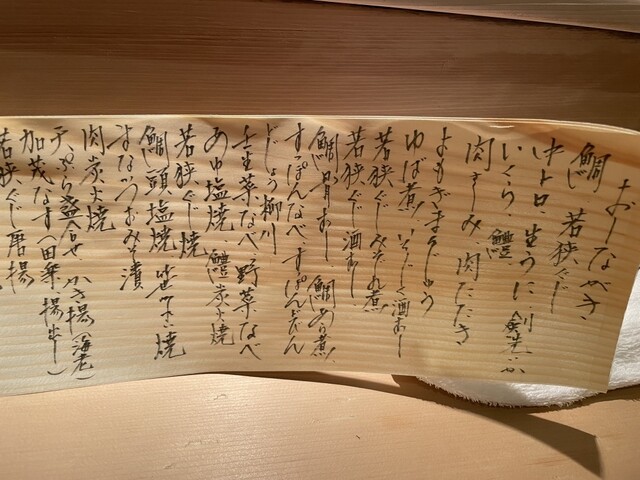 おしながき
鯛 若狭ぐじ
中トロ、生うに、剣先いか
いくら、鱧
肉さしみ、肉たたき
よもぎまんじゅう
ゆば煮、いちじく酒むし
若狭ぐじみぞれ煮
若狭ぐじ酒むし
鯛骨むし 鯛あら煮
すっぽんなべ、すっぽんどん
どじょう柳川
壬生菜なべ、野菜なべ
あゆ塩焼、鱧炭火焼
若狭ぐじ焼
鯛頭塩焼
まながつおみそ漬
肉炭火焼
天ぷら盛合せ かき揚(海老)
加茂なす(田楽、揚出し)
若狭ぐじ唐揚